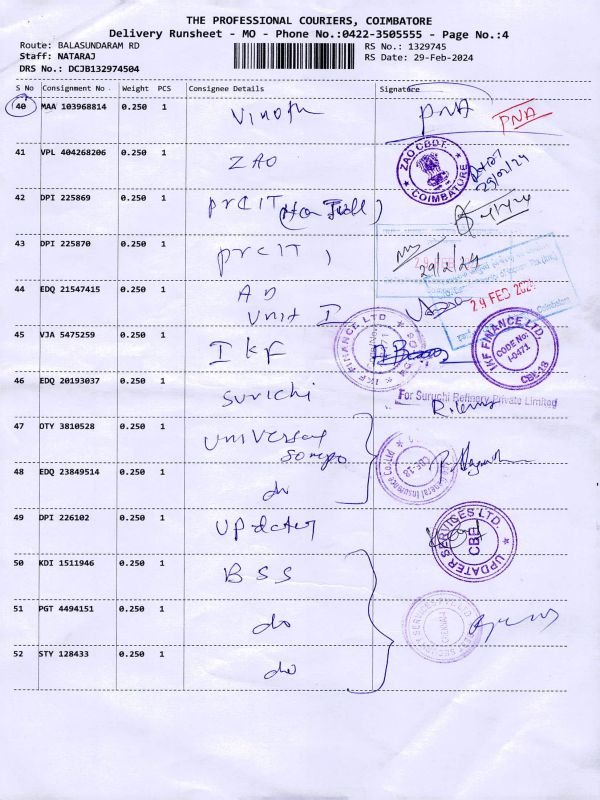 THE PROFESSIONAL COURIERS, COIMBATORE
Delivery Runsheet - MO - Phone No.:0422-3505555 - Page No.:4
Route: BALASUNDARAM RD
RS No.: 1329745
Staff: NATARAJ
RS Date: 29-Feb-2024
DRS No.: DCJB132974504
S No Consignment No Weight PCS Consignee Details Signature
40 MAA 103968814 0.250 1 Vinoth PNA PNA
41 VPL 404268206 0.250 1 ZAO
ZAO CBDT.
COIMBATORE
29/02/24
42 DPI 225869 0.250 1 PrCIT
43 DPI 225870 0.250 1 PrCIT
29/2/24
44 EDQ 21547415 0.250 1 AD
Unit I
29 FEB 2024
Coimbatore
45 VJA 5475259 0.250 1 IKF
IKF FINANCE LTD
IKF FINANCE LTD.
CODE No:
I-0471
CBE-18
46 EDQ 20193037 0.250 1 Surichi
For Suruchi Refinery Private Limited
47 DTY 3810528 0.250 1 Universal
Sompo
General Insurance Co.
CBE-18
48 EDQ 23849514 0.250 1 do
49 DPI 226102 0.250 1 Updater
UPDATER SERVICES LTD.
CBE
50 KDI 1511946 0.250 1 BSS
51 PGT 4494151 0.250 1 do
52 STY 128433 0.250 1 do